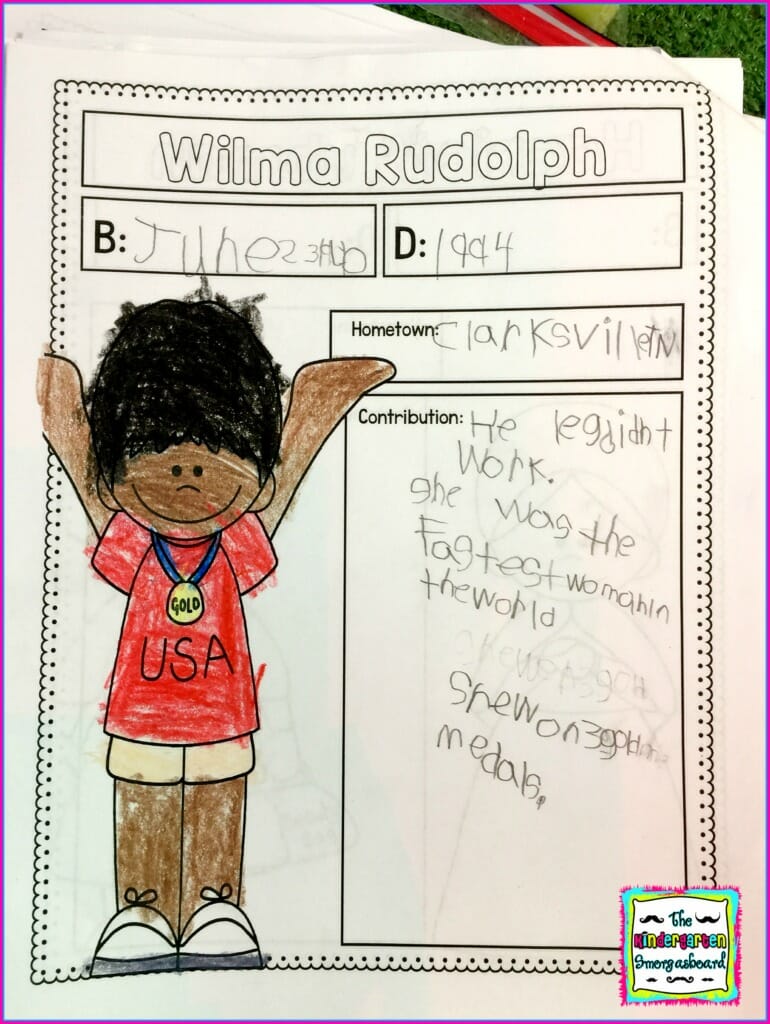 Wilma Rudolph
B: June 23
D: 1994
Hometown: ClarksvilleTN
Contribution: He legdidnt
work.
she was the
Fastest woman in
the world
She won 3 gold
medals.
GOLD
USA
The
Kindergarten
Smorgasboard